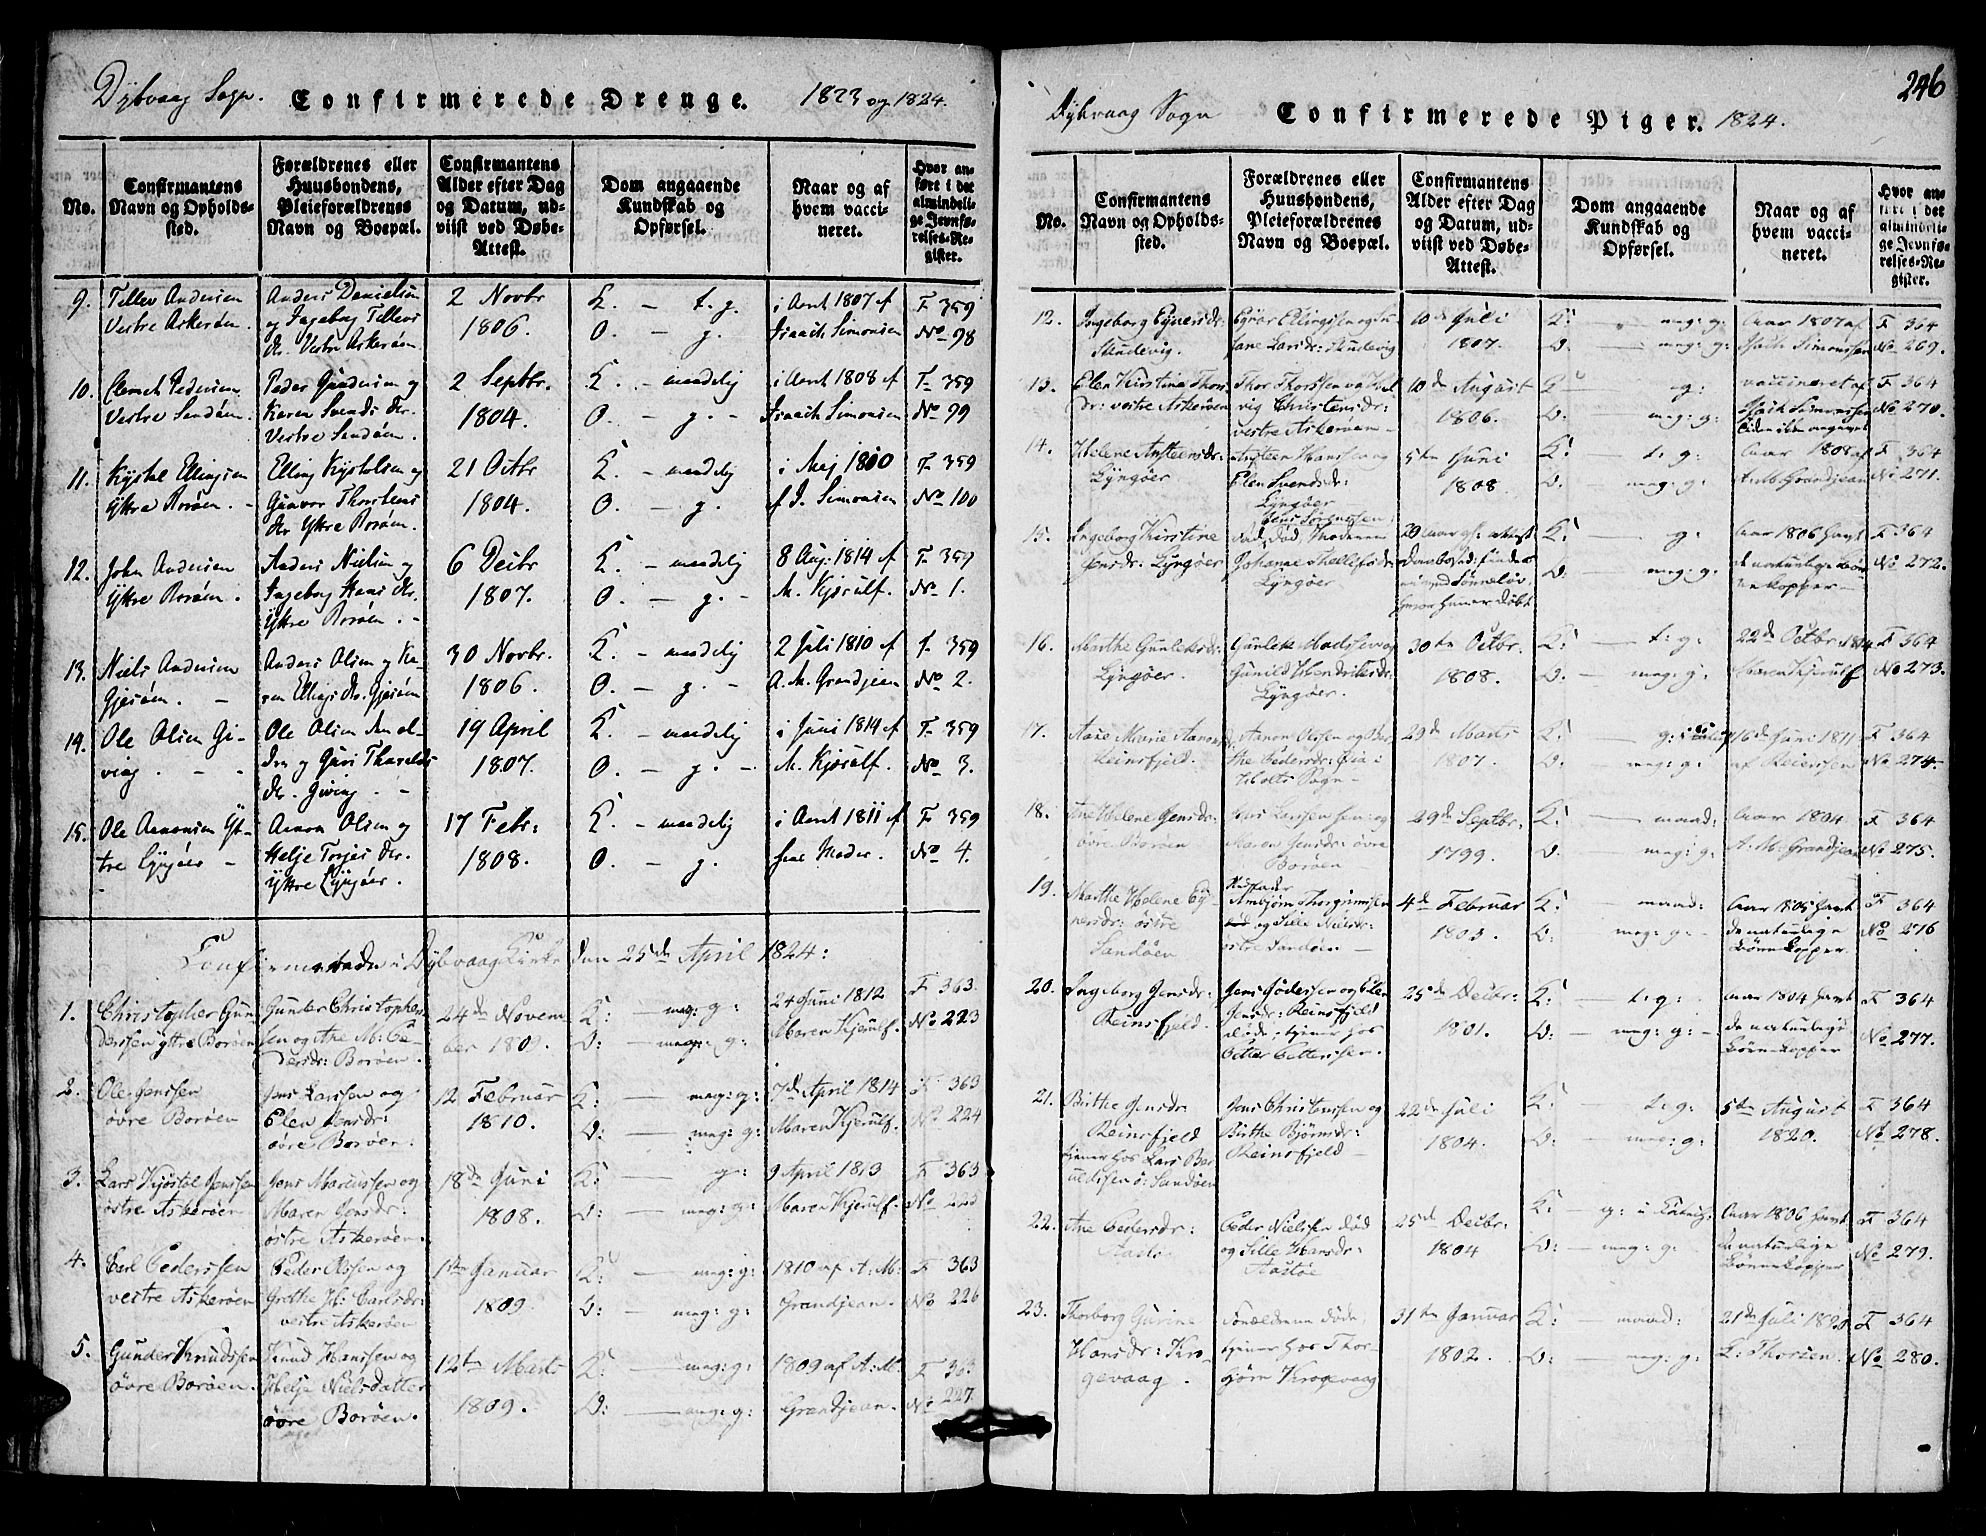 Dybvaag Sogn. Confirmerede Drenge. 1823 og 1824.
No.
Confirmantens
Navn og Opholds-
sted.
Forældrenes eller
Huusbondens,
Pleieforældrenes
Navn og Boepæl.
Confirmantens
Alder efter Dag
og Datum, ud-
viist ved Døbe-
Attest.
Dom angaaende
Kundskab og
Opførsel.
Naar og af
hvem vacci-
neret.
Hvor an-
ført i det
almindeli-
ge Jevnfø-
relses-Re-
gister.
9.
Tellev Andersen
Vestre Askerøen.
Anders Danielsen
og Ingeborg Tellevs
dr. Vestre Askerøen
2 Novbr
1806.
K. - t. g.
O. - g.
i Aaret 1807 af
Isaach Simonsen
F 359
No 98
10.
Clemet Pedersen
Vestre Sandøen.
Peder Gundersen og
Karen Svends dr.
Vestre Sandøen.
2 Septbr.
1804.
K. - maadelig
O. - g. -
i Aaret 1808 af
Isaach Simonsen
F 359
No 99
11.
Kystel Ellingsen
Yttre Borøen. -
Elling Kystelsen og
Gunvor Thorstens
dr Yttre Borøen.
21 Octbr
1804.
K. - maadelig
O. - g.
i Maj 1800
af I. Simonsen
F 359
No 100
12.
John Andersen
Yttre Borøen.
Anders Nielsen og
Ingeborg Hans dr.
Yttre Borøen. -
6 Decbr
1807.
K. - maadelig
O. - g. -
8 Aug. 1814 af
M. Kjerulf.
F. 359
No 1.
13.
Niels Andersen
Gjesøen. -
Anders Olsen og Ka-
ren Ellings dr. Gjesøen.
30 Novbr.
1806.
K. - maadelig
O. - g. -
2 Juli 1810 af
A. M. Grandjean
F 359
No 2.
14.
Ole Olsen Gi-
ving. - -
Ole Olsen den el-
dre og Guri Tharalds
dr. Giving. -
19 April
1807.
K. - maadelig
O. - g. -
i Juni 1814 af
M. Kjerulf.
F. 359
No 3.
15.
Ole Aanonsen Yt-
tre Lyngøer -
Aanon Olsen og
Helje Torjes dr.
Yttre Lyngøer.
17 Febr:
1808.
K. - maadelig
O. - g.
i Aaret 1811 af
sine Moder.
F 359
No 4.
Confirmerede i Dybvaag Kirke den 25de April 1824:
1.
Christopher Gun-
derssen yttre Borøen
Gunder Christopher-
sen og Ane M: Pe-
dersdr: Borøen.
24de Novem
ber 1809.
K: - meg: g:
O: - meg: g:
24 Juni 1812
Maren Kjerulf.
F 363.
No 223
2.
Ole Jenssen
øvre Borøen
Jens Larssen og
Elen Jensdr:
øvre Borøen.
12 Februar
1810.
K: - meg: g:
O: - meg: g:
7de April 1814
Maren Kjerulf.
F 363
No 224
3.
Lars Kjøstol Jenssen
østre Askerøen
Jens Marcussen og
Maren Jensdr:
østre Askerøen.
18de Juni
1808.
K: - g:
O: - meg: g:
9 April 1813
Maren Kjerulf.
F 363
No 225
4.
Carl Pederssen
vestre Askerøen
Peder Olssen og
Grethe M: Carlsdr:
vestre Askerøen
1ste Januar
1809.
K: - meg: g:
O: - meg: g:
1810 af A: M:
Grandjean.
F 363
No 226
5.
Gunder Knudssen
øvre Borøen.
Knud Hanssen og
Helje Nielsdatter
øvre Borøen.
12te Marts
1809.
K: - meg: g:
O: - meg: g:
1809 af A: M:
Grandjean.
F 363
No 227.
246
Dybvaag Sogn Confirmerede Piger. 1824.
No.
Confirmantens
Navn og Opholds-
sted.
Forældrenes eller
Huusbondens,
Pleieforældrenes
Navn og Boepæl.
Confirmantens
Alder efter Dag
og Datum, ud-
viist ved Døbe-
Attest.
Dom angaaende
Kundskab og
Opførsel.
Naar og af
hvem vacci-
neret.
Hvor an-
ført i det
almindeli-
ge Jevnfø-
relses-Re-
gister.
12.
Ingeborg Eynersdr:
Skudevig.
Eyner Ellingsen og
Larsdr: Skudevig
10de Juli
1807.
K: - meg: g:
O: - meg: g:
Aar 1807 af
Isach Simonssen
F 364
No 269.
13.
Elen Kirstine Thors
dr: vestre Askerøen
Thor Thorssen og Hed-
vig Christensdr:
vestre Askerøen -
10de August
1806.
K: - g:
O: - meg: g:
vaccineret af
Isach Simonssen
Tiden ikke angivet
F 364
No 270.
14.
Helene Ansteensdr:
Lyngøer
Ansteen Hanssen og
Elen Svendsdr:
Lyngøer
5te Juni
1808.
K: - t: g:
O: - meg: g:
Aar 1808 af
A: M: Grandjean
F 364
No 271.
15.
Ingeborg Kirstine
Jensdr: Lyngøer
Jens Sørenssen,
død, Moderen
Johanne Thellefsdr:
Lyngøer
K: - g:
O: - meg: g:
Aar 1806 havt
de naturlige Bør-
nekopper -
F 364
No 272.
16.
Marthe Gunleksdr:
Lyngøer
Gunlek Madssen og
Gunild Hendriksdr:
Lyngøer.
30te Octbr.
1808.
K: - t: g:
O: - meg: g:
22de Octbr. 1814
Maren Kjerulf
F 364
No 273.
17.
Aase Marie Aanonsdr:
Reinsfjeld.
Aanon Olssen og Ber-
the Pedersdr: Øia i
Holts Sogn -
29de Marts
1807.
K: - g:
O: - meg: g:
16de Juni 1811
af Reierssen
F 364
No 274.
18.
Ane Helene Jensdr:
øvre Borøen
Jens Larssen og
Maren Jensdr: øvre
Borøen
29de Septbr.
1799.
K: - maad:
O: - meg: g:
Aar 1804.
A. M. Grandjean
F 364
No 275.
19.
Marthe Helene Ey-
nersdr: østre
Sandøen
Stedfader
Ambjørn Thorgrimssen
og Sille Nielsdr:
østre Sandøen -
4de Februar
1803.
K: - maad:
O: - meg: g: -
Aar 1805 havt
de naturlige
Børnekopper
F 364
No 276
20.
Ingeborg Jensdr:
Reinsfjeld.
Jens Giderssen og Elen
Jensdr: Reinsfjeld
døde, tjener hos
Petter Petterssen.
25de Decbr:
1801.
K: - t: g:
O: - meg: g: -
Aar 1804 havt
de naturlige
Børnekopper
F 364
No 277.
21.
Birthe Jensdr.
Reinsfjeld
tjener hos Lars Ber-
uldssen ø: Sandøen
Jens Christenssen og
Birthe Bjørnsdr:
Reinsfjeld -
22de Juli
1804.
K: - t: g:
O: - meg: g:
5te August
1820.
F 364
No 278.
22.
Ane Pedersdr:
Aastøe
Peder Nielssen død
og Sille Hansdr:
Aastøe
25de Decbr:
1804
K: - g: i Catech:
O: - meg: g:
Aar 1806 havt
de naturlige
Børnekopper
F 364
No 279.
23.
Thorborg Gurine
Hansdr: Kro-
gevaag.
Forældrene døde,
tjener hos Thor-
bjørn Krogevaag
31te Januar
1802.
K: - maad:
O: - meg: g:
21de Juli 1820
L: Thorsen.
F 364
No 280.